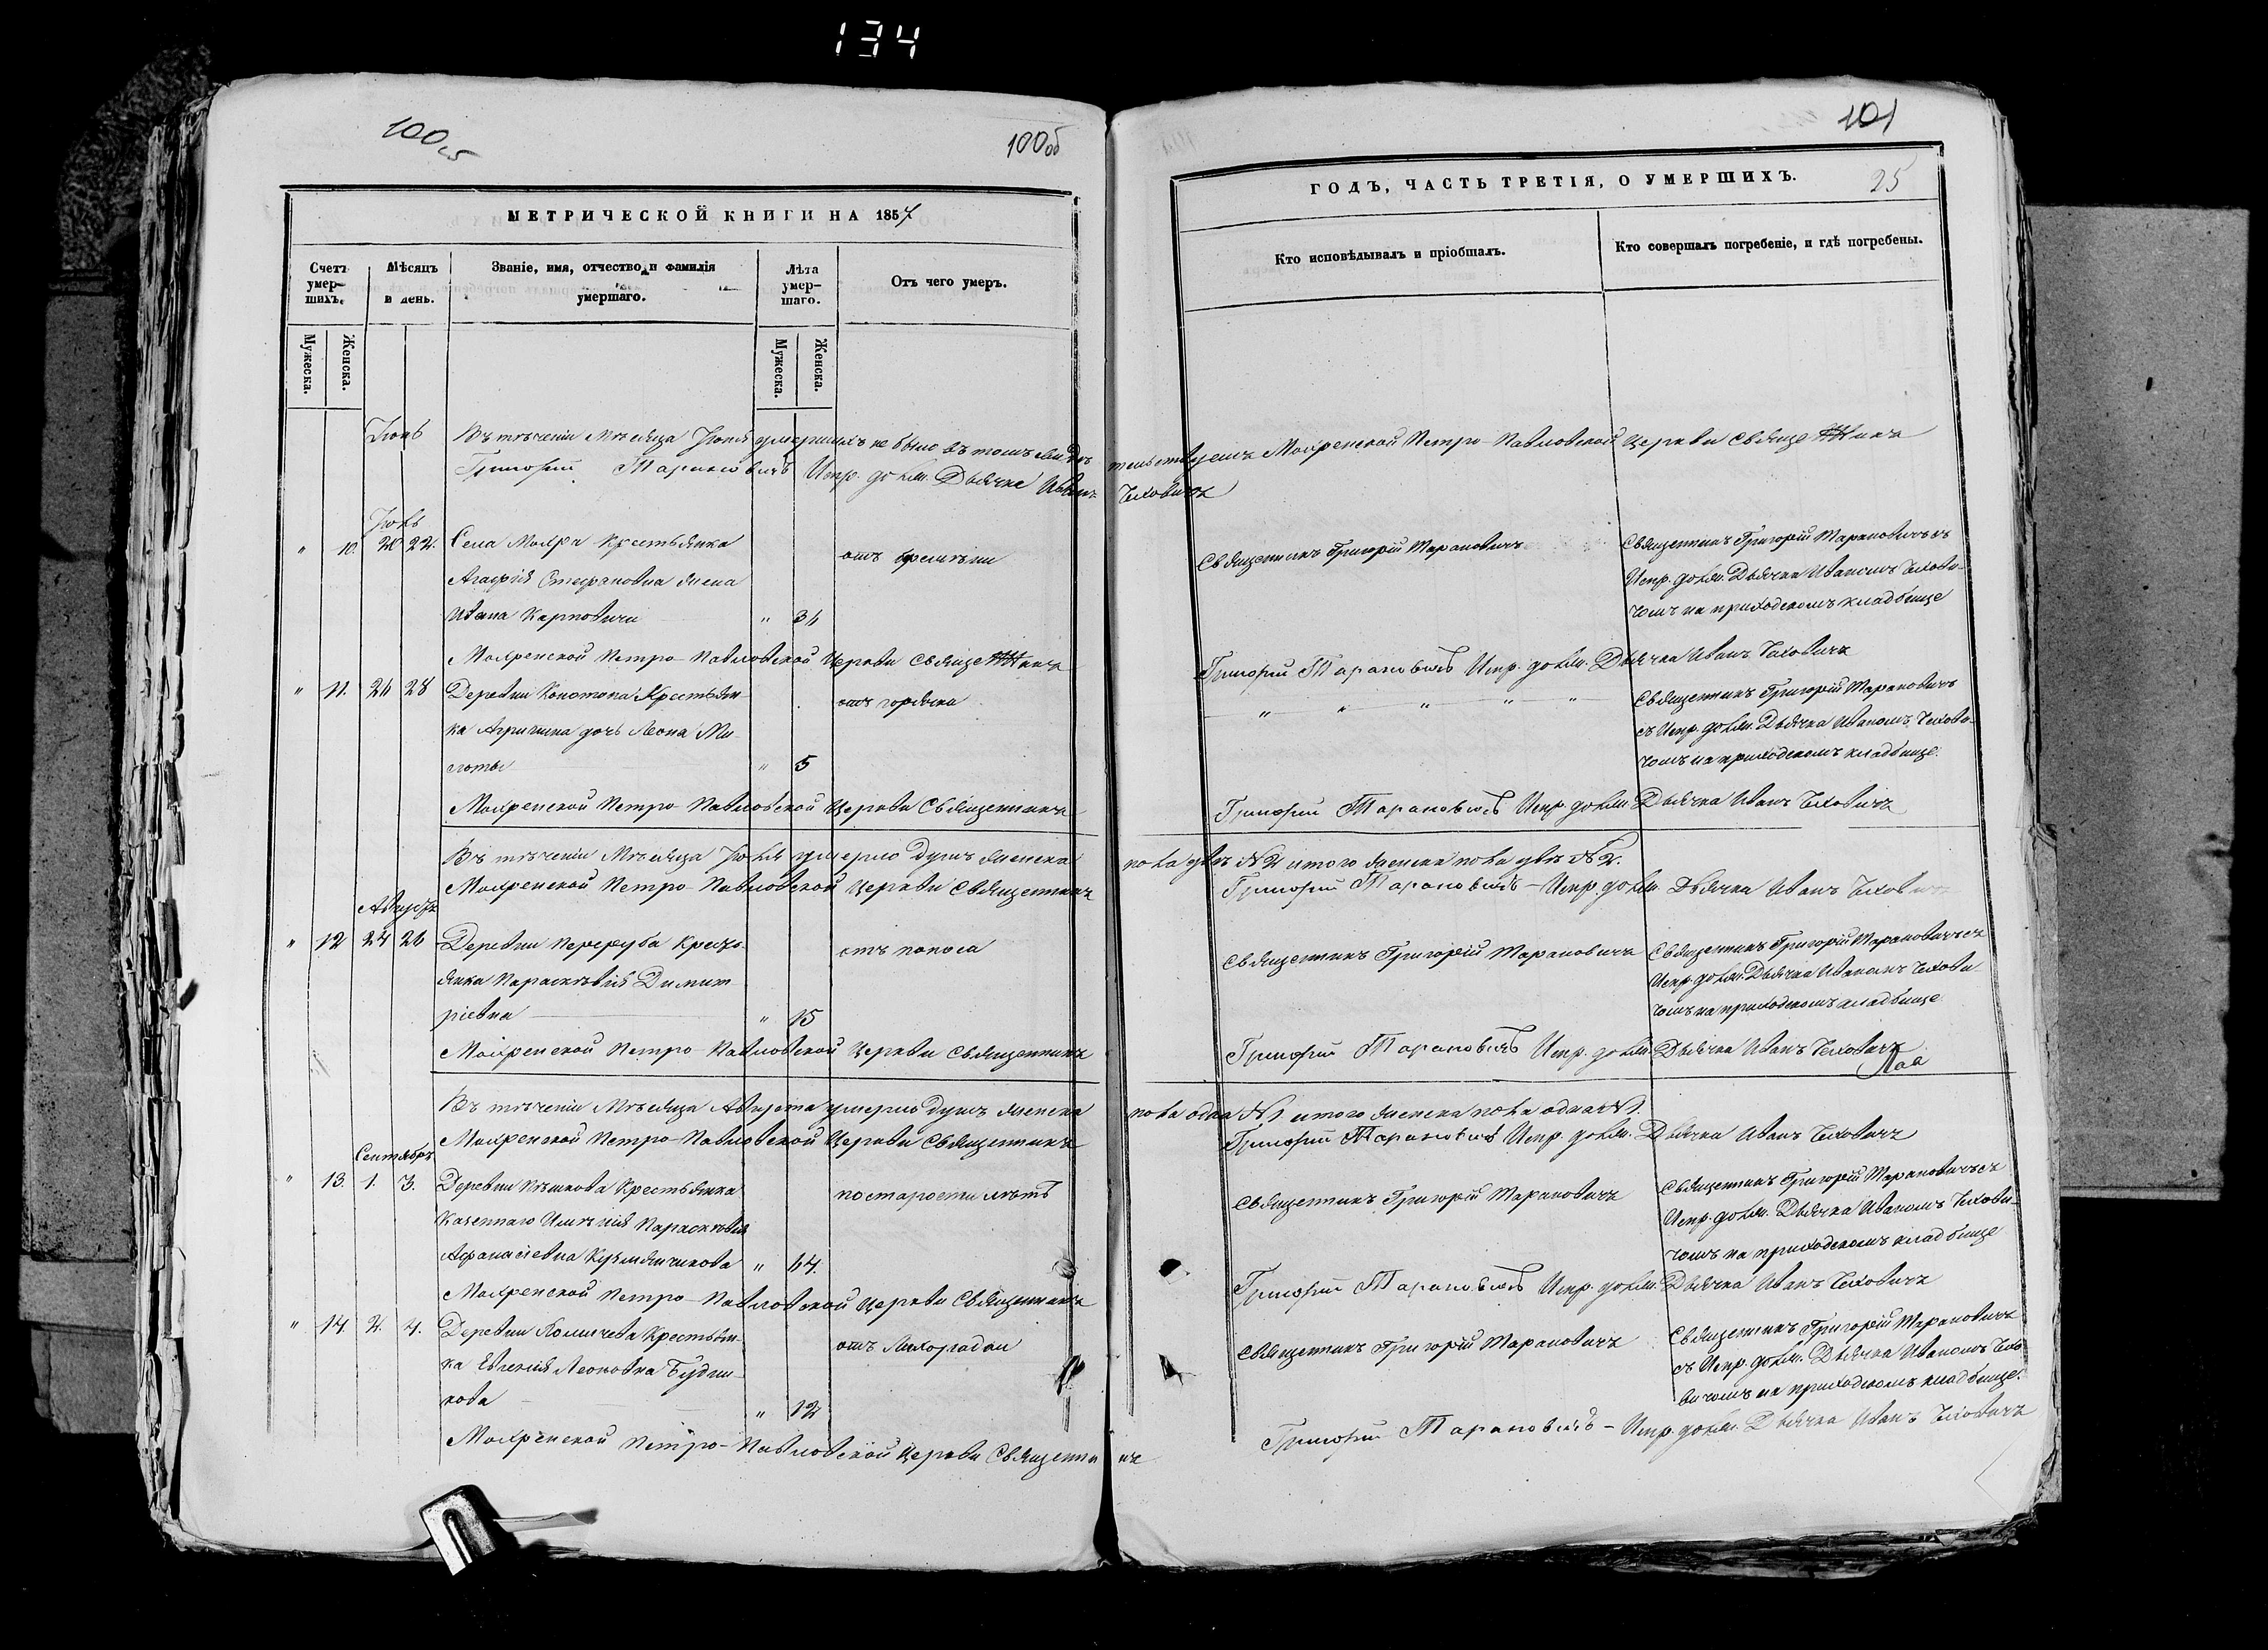 134
100об
100об
МЕТРИЧЕСКОЙ КНИГИ НА 1857
Счетъ умершихъ.
Мѣсяцъ и день.
Званіе, имя, отчество и фамилія умершаго.
Лѣта умершаго.
Отъ чего умеръ.
Мужеска.
Женска.
Мужеска.
Женска.
Іюнь
Въ теченіи Мѣсяца Іюня умершихъ не было въ томъ свидѣ
Григорій Тарановичъ Испр. долж. Дьячка Иванъ
Іюль
" 10. 20 22. Села Мокра Крестьянка
отъ
Агафія Стефановна жена
Ивана Карповича " 36
Мокренской Петро-Павловской Церкви Священникъ
" 11. 26 28 Деревни Конотопа Крестьян-
отъ горячки
ка Агрипина дочь Леона Ми-
" 5
Мокренской Петро-Павловской Церкви Священникъ
Въ теченіи Мѣсяца Іюля умерло душъ женска
Мокренской Петро-Павловской Церкви Священникъ
Августъ
" 12 24 26 Деревни Переруба Крестьянка
отъ поноса
Параскевія Димит
ріевна " 15
Мокренской Петро-Павловской Церкви Священникъ
Въ теченіи Мѣсяца Августа умерло душъ женска
Мокренской Петро-Павловской Церкви Священникъ
Сентябрь
" 13. 1. 3. Деревни Крестьянка
по старости лѣтъ
Казеннаго Имѣнія Параскевія
Афанасіевна " 64.
Мокренской Петро-Павловской Церкви Священникъ
" 14. 2. 4. Деревни Крестьян-
отъ Лихорадки
ка Евгенія Леоновна Будни-
кова " 12
Мокренской Петро-Павловской Церкви Священникъ
101
ГОДЪ, ЧАСТЬ ТРЕТІЯ, О УМЕРШИХЪ.
25
Кто исповѣдывалъ и пріобщалъ.
Кто совершалъ погребеніе, и гдѣ погребены.
тельствуемъ Мокренской Петро-Павловской Церкви Священникъ
Чеховичъ
Священникъ Григорій Тарановичъ
Священникъ Григорій Тарановичъ съ
Испр. долж. Дьячка Иваномъ Чехови-
чемъ на приходскомъ кладбище
Григорій Тарановичъ Испр. долж. Дьячка Иванъ Чеховичъ
" " " " "
Священникъ Григорій Тарановичъ
съ Испр. долж. Дьячка Иваномъ Чехови-
чемъ на приходскомъ кладбище.
Григорій Тарановичъ Испр. долж. Дьячка Иванъ Чеховичъ
пола двѣ №2 итого женска пола двѣ №2.
Григорій Тарановичъ – Испр. долж. Дьячка Иванъ Чеховичъ
Священникъ Григорій Тарановичъ
Священникъ Григорій Тарановичъ съ
Испр. долж. Дьячка Иваномъ Чехови
чемъ на приходскомъ кладбище
Григорій Тарановичъ Испр. долж. Дьячка Иванъ Чеховичъ
пола одна №1 итого женска пола одна №1.
Григорій Тарановичъ Испр. долж. Дьячка Иванъ Чеховичъ
Священникъ Григорій Тарановичъ
Священникъ Григорій Тарановичъ съ
Испр. долж. Дьячка Иваномъ Чехови-
чемъ на приходскомъ кладбище
Григорій Тарановичъ Испр. долж. Дьячка Иванъ Чеховичъ
Священникъ Григорій Тарановичъ
Священникъ Григорій Тарановичъ
съ Испр. долж. Дьячка Иваномъ Чехо-
вичемъ на приходскомъ кладбище.
Григорій Тарановичъ – Испр. долж. Дьячка Иванъ Чеховичъ